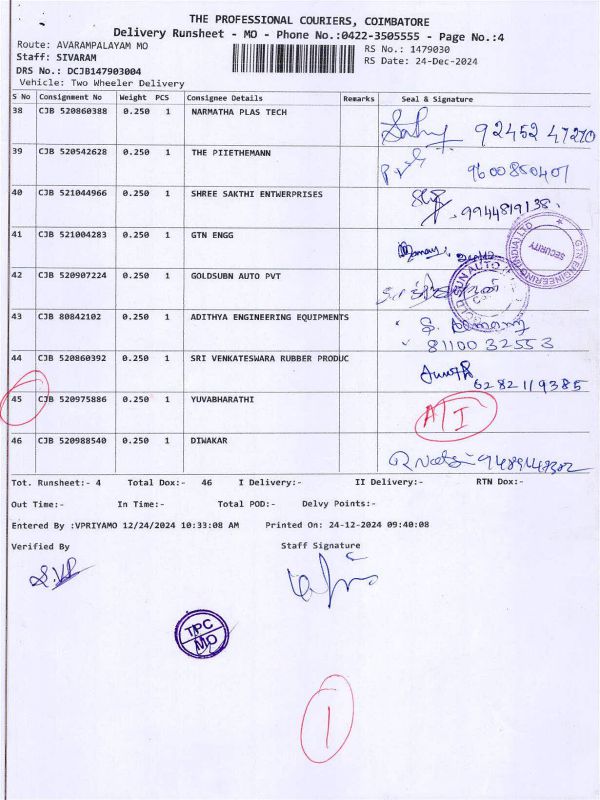 THE PROFESSIONAL COURIERS, COIMBATORE
Delivery Runsheet - MO - Phone No.:0422-3505555 - Page No.:4
Route: AVARAMPALAYAM MO
RS No.: 1479030
Staff: SIVARAM
RS Date: 24-Dec-2024
DRS No.: DCJB147903004
Vehicle: Two Wheeler Delivery
S No Consignment No Weight PCS Consignee Details Remarks Seal & Signature
38 CJB 520860388 0.250 1 NARMATHA PLAS TECH 92452 47270
39 CJB 520542628 0.250 1 THE PIIETHEMANN 9600850401
40 CJB 521044966 0.250 1 SHREE SAKTHI ENTWERPRISES 9944819138.
41 CJB 521004283 0.250 1 GTN ENGG
GTN ENGINEERING (INDIA) LTD
SECURITY
42 CJB 520907224 0.250 1 GOLDSUBN AUTO PVT
43 CJB 80842102 0.250 1 ADITHYA ENGINEERING EQUIPMENTS
8110032553
44 CJB 520860392 0.250 1 SRI VENKATESWARA RUBBER PRODUC
6282119385
45 CJB 520975886 0.250 1 YUVABHARATHI A/I
46 CJB 520988540 0.250 1 DIWAKAR
Tot. Runsheet:- 4 Total Dox:- 46 I Delivery:- II Delivery:- RTN Dox:-
Out Time:- In Time:- Total POD:- Delvy Points:-
Entered By :VPRIYAMO 12/24/2024 10:33:08 AM Printed On: 24-12-2024 09:40:08
Verified By Staff Signature
S.VP
TPC
MO
1